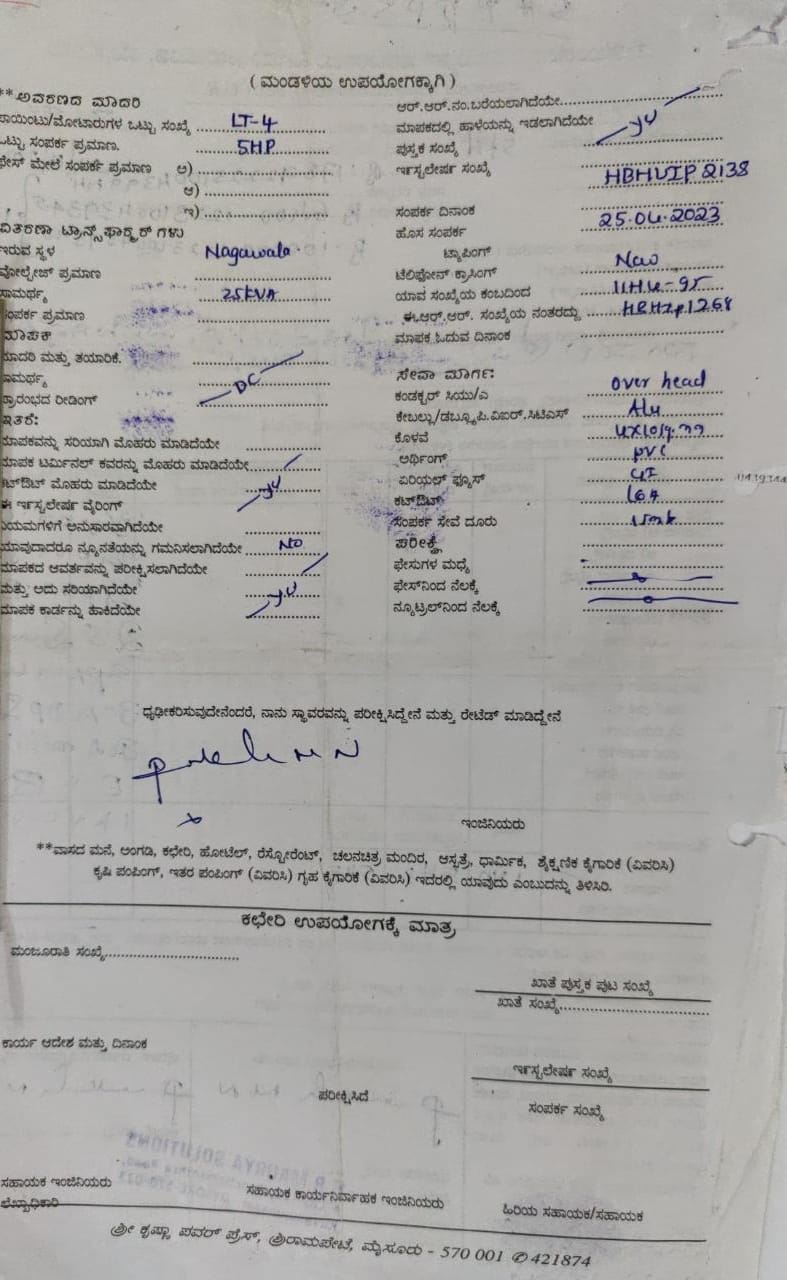 ( ಮಂಡಳಿಯ ಉಪಯೋಗಕ್ಕಾಗಿ )
**ಆವರಣದ ಮಾದರಿ
ಪಾಯಿಂಟು/ಮೋಟಾರುಗಳ ಒಟ್ಟು ಸಂಖ್ಯೆ ........ LT-4
ಒಟ್ಟು ಸಂಪರ್ಕ ಪ್ರಮಾಣ. ........ 5HP
ಫೇಸ್ ಮೇಲೆ ಸಂಪರ್ಕ ಪ್ರಮಾಣ ಅ) ........
ಆ) ........
ಇ) ........
ವಿತರಣಾ ಟ್ರಾನ್ಸ್‌ಫಾರ್ಮರ್ ಗಳು
ಇರುವ ಸ್ಥಳ Nagawala
ವೋಲ್ಟೇಜ್ ಪ್ರಮಾಣ ........
ಸಾಮರ್ಥ್ಯ 25KVA
ಸಂಪರ್ಕ ಪ್ರಮಾಣ ........
ಮಾಪಕ
ಮಾದರಿ ಮತ್ತು ತಯಾರಿಕೆ. ........
ಸಾಮರ್ಥ್ಯ DC
ಪ್ರಾರಂಭದ ರೀಡಿಂಗ್ ........
ಇತರೆ:
ಮಾಪಕವನ್ನು ಸರಿಯಾಗಿ ಮೊಹರು ಮಾಡಿದೆಯೇ ........
ಮಾಪಕ ಟರ್ಮಿನಲ್ ಕವರನ್ನು ಮೊಹರು ಮಾಡಿದೆಯೇ ........
ಕಟ್‌ಔಟ್ ಮೊಹರು ಮಾಡಿದೆಯೇ ........
ಈ ಇನ್ಸ್‌ಟಲೇಷನ್ ವೈರಿಂಗ್
ನಿಯಮಗಳಿಗೆ ಅನುಸಾರವಾಗಿದೆಯೇ ........
ಯಾವುದಾದರೂ ನ್ಯೂನತೆಯನ್ನು ಗಮನಿಸಲಾಗಿದೆಯೇ NO
ಮಾಪಕದ ಆವರ್ತವನ್ನು ಪರೀಕ್ಷಿಸಲಾಗಿದೆಯೇ ........
ಮತ್ತು ಅದು ಸರಿಯಾಗಿದೆಯೇ ........
ಮಾಪಕ ಕಾರ್ಡನ್ನು ಹಾಕಿದೆಯೇ ........
ಆರ್.ಆರ್.ನಂ.ಬರೆಯಲಾಗಿದೆಯೇ ........
ಮಾಪಕದಲ್ಲಿ ಹಾಳೆಯನ್ನು ಇಡಲಾಗಿದೆಯೇ
ಪುಸ್ತಕ ಸಂಖ್ಯೆ ........
ಇನ್ಸ್‌ಟಲೇಷನ್ ಸಂಖ್ಯೆ HBHUIP 2138
ಸಂಪರ್ಕ ದಿನಾಂಕ 25.04.2023
ಹೊಸ ಸಂಪರ್ಕ
ಟ್ಯಾಪಿಂಗ್
ಟೆಲಿಫೋನ್ ಕ್ರಾಸಿಂಗ್
ಯಾವ ಸಂಖ್ಯೆಯ ಕಂಬದಿಂದ
ಈ.ಆರ್.ಆರ್. ಸಂಖ್ಯೆಯ ನಂತರದ್ದು ........
ಮಾಪಕ ಓದುವ ದಿನಾಂಕ ........
ಸೇವಾ ಮಾರ್ಗ:
ಕಂಡಕ್ಟರ್ ಸಿಯು/ಎ over head
ಕೇಬಲ್ಲು/ಡಬ್ಲ್ಯೂ.ಪಿ.ವಿಐರ್.ಸಿಟಿಎಸ್ Alu
ಕೊಳವೆ
ಅರ್ಥಿಂಗ್ PVC
ಏರಿಯಲ್ ಫ್ಯೂಸ್ GI
ಕಟ್‌ಔಟ್ 16A
ಸಂಪರ್ಕ ಸೇವೆ ದೂರು
ಪರೀಕ್ಷೆ ........
ಫೇಸುಗಳ ಮಧ್ಯೆ ........
ಫೇಸ್‌ನಿಂದ ನೆಲಕ್ಕೆ ........
ನ್ಯೂಟ್ರಲ್‌ನಿಂದ ನೆಲಕ್ಕೆ ........
ಧೃಢೀಕರಿಸುವುದೇನೆಂದರೆ, ನಾನು ಸ್ಥಾವರವನ್ನು ಪರೀಕ್ಷಿಸಿದ್ದೇನೆ ಮತ್ತು ರೇಟೆಡ್ ಮಾಡಿದ್ದೇನೆ
ಇಂಜಿನಿಯರು
**ವಾಸದ ಮನೆ, ಅಂಗಡಿ, ಕಛೇರಿ, ಹೋಟೆಲ್, ರೆಸ್ಟೋರೆಂಟ್, ಚಲನಚಿತ್ರ ಮಂದಿರ, ಆಸ್ಪತ್ರೆ, ಧಾರ್ಮಿಕ, ಶೈಕ್ಷಣಿಕ ಕೈಗಾರಿಕೆ (ವಿವರಿಸಿ)
ಕೃಷಿ ಪಂಪಿಂಗ್, ಇತರ ಪಂಪಿಂಗ್ (ವಿವರಿಸಿ) ಗೃಹ ಕೈಗಾರಿಕೆ (ವಿವರಿಸಿ) ಇದರಲ್ಲಿ ಯಾವುದು ಎಂಬುದನ್ನು ತಿಳಿಸಿರಿ.
ಕಛೇರಿ ಉಪಯೋಗಕ್ಕೆ ಮಾತ್ರ
ಮಂಜೂರಾತಿ ಸಂಖ್ಯೆ........
ಖಾತೆ ಪುಸ್ತಕ ಪುಟ ಸಂಖ್ಯೆ
ಖಾತೆ ಸಂಖ್ಯೆ........
ಕಾರ್ಯ ಆದೇಶ ಮತ್ತು ದಿನಾಂಕ
ಇನ್ಸ್‌ಟಲೇಷನ್ ಸಂಖ್ಯೆ
ಪರೀಕ್ಷಿಸಿದೆ
ಸಂಪರ್ಕ ಸಂಖ್ಯೆ
ಸಹಾಯಕ ಇಂಜಿನಿಯರು
ಲೆಖ್ಖಾಧಿಕಾರಿ
ಸಹಾಯಕ ಕಾರ್ಯನಿರ್ವಾಹಕ ಇಂಜಿನಿಯರು
ಹಿರಿಯ ಸಹಾಯಕ/ಸಹಾಯಕ
ಶ್ರೀ ಕೃಷ್ಣಾ ಪವರ್ ಪ್ರೆಸ್, ಶ್ರೀರಾಮಪೇಟೆ, ಮೈಸೂರು - 570 001 ✆421874